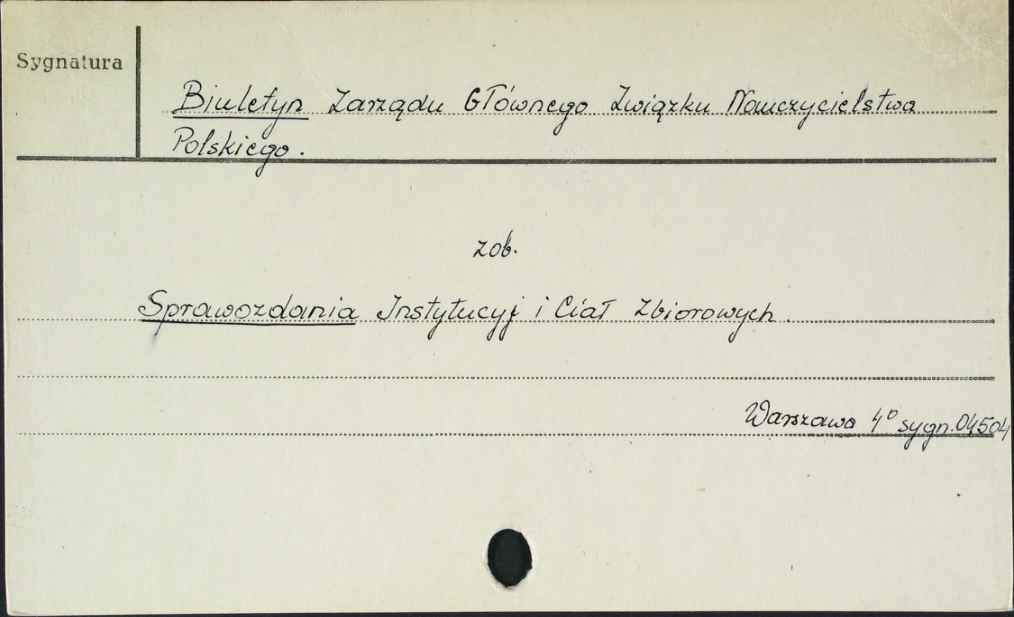 Sygnatura
Biuletyn Zarządu Głównego Związku Nauczycielstwa
Polskiego.
zob.
Sprawozdania Instytucyj i Ciał Zbiorowych.
Warszawa 4° sygn. 04504